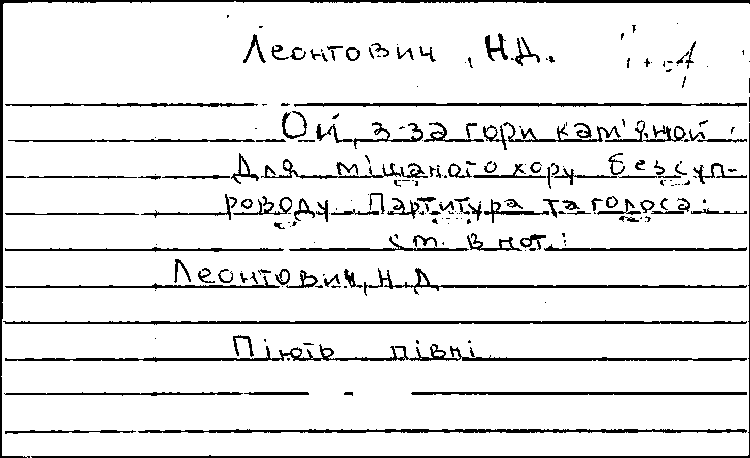 Леонтович, Н.Д.
Ой, з-за гори кам'яної.
Для мішаного хору без суп-
роводу. Партитура та голоса.
см. в нот.:
Леонтович, Н.Д.
Піють півні